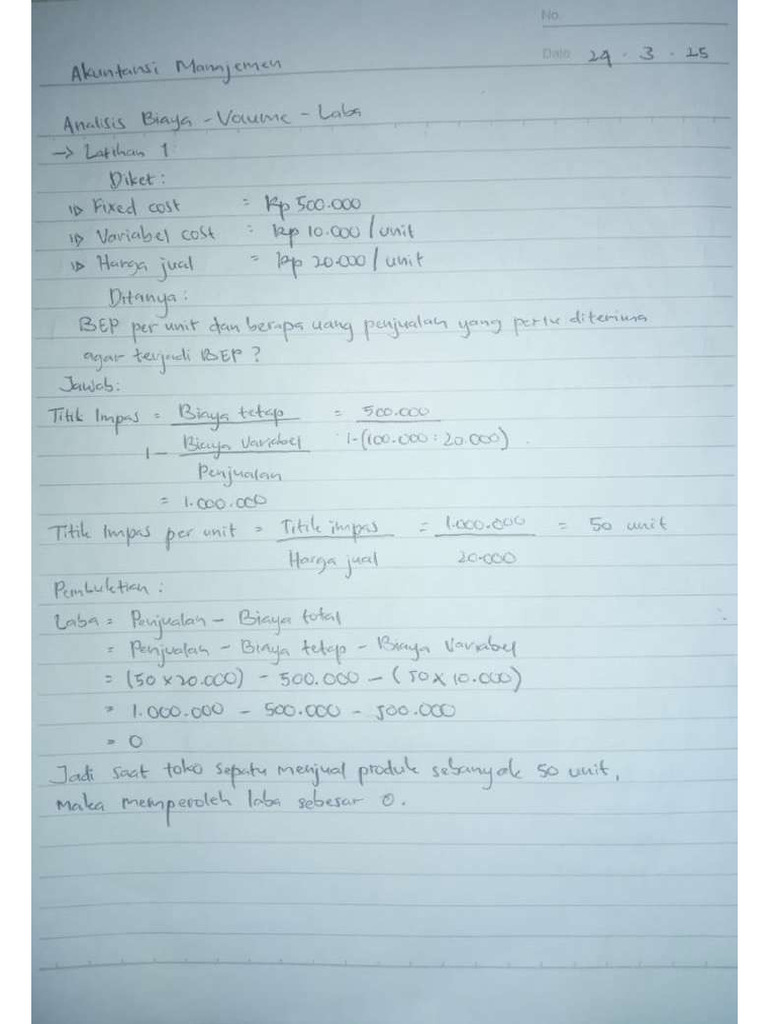 No.
Date 29 . 3 . 25
Akuntansi Manajemen
Analisis Biaya - Volume - Laba
→ Latihan 1
Diket:
Fixed cost = Rp 500.000
Variabel cost = Rp 10.000 / unit
Harga jual = Rp 20.000 / unit
Ditanya:
BEP per unit dan berapa uang penjualan yang perlu diterima
agar terjadi BEP ?
Jawab:
Titik Impas = Biaya tetap = 500.000
1 - Biaya Variabel 1-(100.000 : 20.000)
Penjualan
= 1.000.000
Titik Impas per unit = Titik impas = 1.000.000 = 50 unit
Harga jual 20.000
Pembuktian :
Laba = Penjualan - Biaya total
= Penjualan - Biaya tetap - Biaya Variabel
= (50 x 20.000) - 500.000 - (50 x 10.000)
= 1.000.000 - 500.000 - 500.000
= 0
Jadi saat toko sepatu menjual produk sebanyak 50 unit,
maka memperoleh laba sebesar 0.